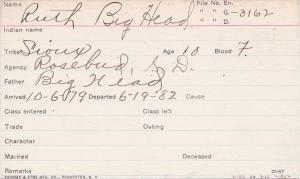 Name Ruth Big Head File No. En.
" " G.-3162
" " D.
Indian name
Tribe Sioux Age 10 Blood F.
Agency Rosebud, S.D.
Father Big Head
Arrived 10-6-79 Departed 6-19-82 Cause
Class entered Class left
Trade Outing
Character
Married Deceased
Remarks over